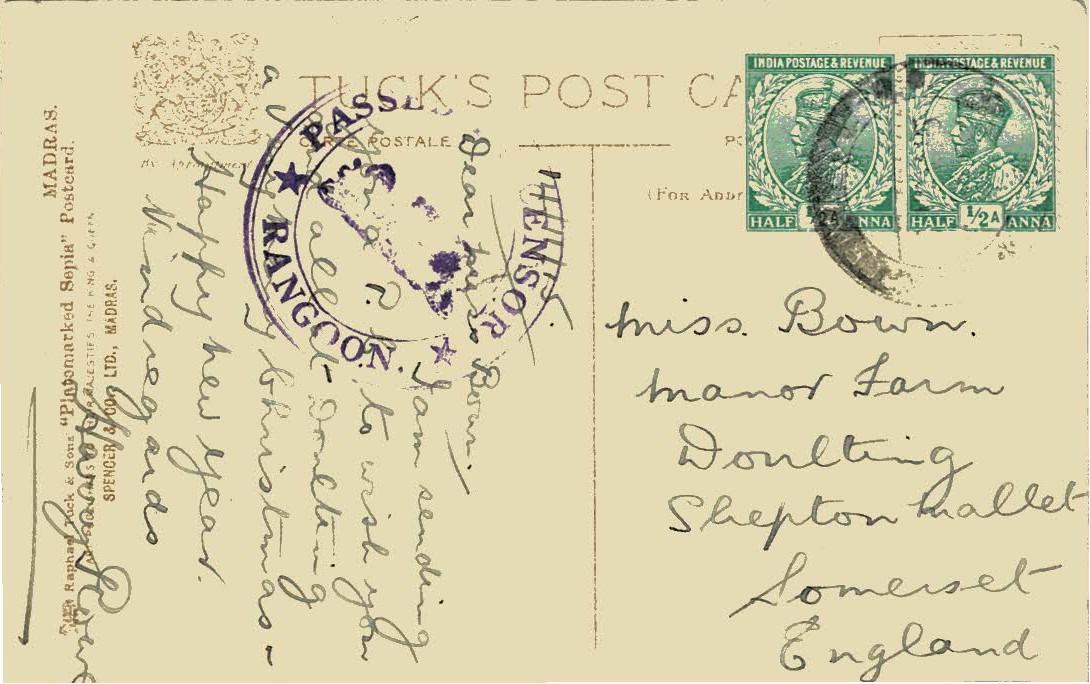 TUCK'S POST CA
CARTE POSTALE
(For Addr
INDIA POSTAGE & REVENUE
HALF 1/2 A ANNA
INDIA POSTAGE & REVENUE
HALF 1/2 A ANNA
PASSED CENSOR
RANGOON.
Dear Miss Bown.
I am sending
you a P. to wish you
all at - Doulting
a Christmas -
Happy new year.
Kind regards
Harry
miss. Bown.
manor Farm
Doulting
Shepton mallet
Somerset
England
MADRAS.
Raphael Tuck & Sons "Platemarked Sepia" Postcard.
MAJESTIES THE KING & QUEEN
SPENCER & CO., LTD., MADRAS.